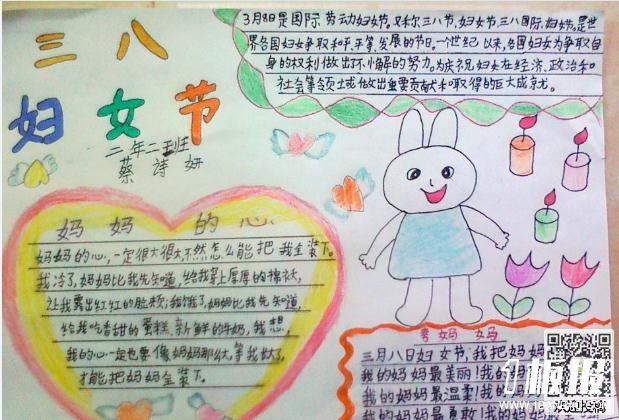 三八
妇女节
二年二班
蔡诗妍
3月8日是国际劳动妇女节。又称三八节,妇女节,三八国际妇女节。是世
界各国妇女争取和平、平等、发展的节日。一个世纪以来,各国妇女为争取自
身的权利做出了不懈的努力。为庆祝妇女在经济、政治和
社会等领域做出重要贡献和取得的巨大成就。
妈妈的心
妈妈的心,一定很大很大,不然怎么能把我全装下。
我冷了,妈妈比我先知道,给我穿上厚厚的棉袄,
让我露出红红的脸颊;我饿了,妈妈比我先知道,
给我吃香甜的蛋糕、新鲜的牛奶,我想
我的心一定也要像妈妈那么大,等我大了,
才能把妈妈全装下。
夸妈妈
三月八日妇女节,我把妈妈
我的妈妈最美丽!我的妈
我的妈妈最温柔!我的妈
我的妈妈最勇敢!我的